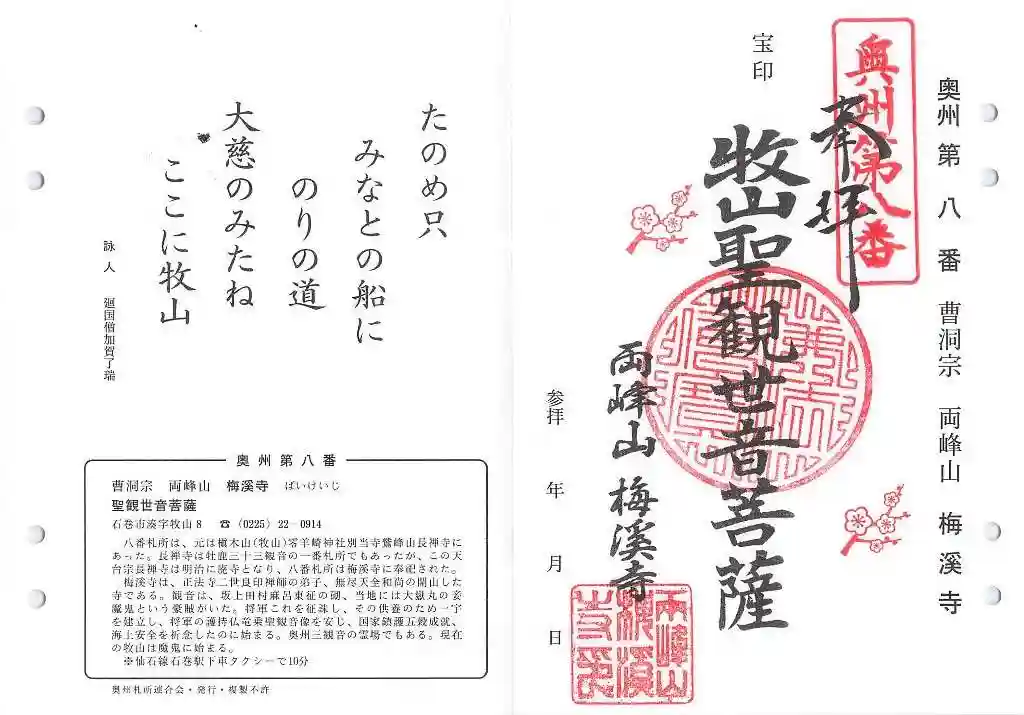 奥州第八番 曹洞宗 両峰山 梅溪寺
奥州第八番
奉拝
宝印
牧山聖観世音菩薩
両峰山 梅溪寺
参拝 年 月 日
たのめ只
みなとの船に
のりの道
大慈のみたね
ここに牧山
詠人 廻国僧加賀了瑞
奥州第八番
曹洞宗 両峰山 梅溪寺 ばいけいじ
聖観世音菩薩
石巻市湊字牧山8 ☎(0225)22−0914
八番札所は、元は槇木山(牧山)零羊崎神社別当寺鷲峰山長禅寺に
あった。長禅寺は牡鹿三十三観音の一番札所でもあったが、この天
台宗長禅寺は明治に廃寺となり、八番札所は梅溪寺に奉祀された。
梅溪寺は、正法寺二世良印禅師の弟子、無尽天全和尚の開山した
寺である。観音は、坂上田村麻呂東征の砌、当地には大嶽丸の妾
魔鬼という豪賊がいた。将軍これを征誅し、その供養のため一宇
を建立し、将軍の護持仏竜乗聖観音像を安じ、国家鎮護五穀成就、
海上安全を祈念したのに始まる。奥州三観音の霊場でもある。現在
の牧山は魔鬼に始まる。
※仙石線石巻駅下車タクシーで10分
奥州札所連合会・発行・複製不許